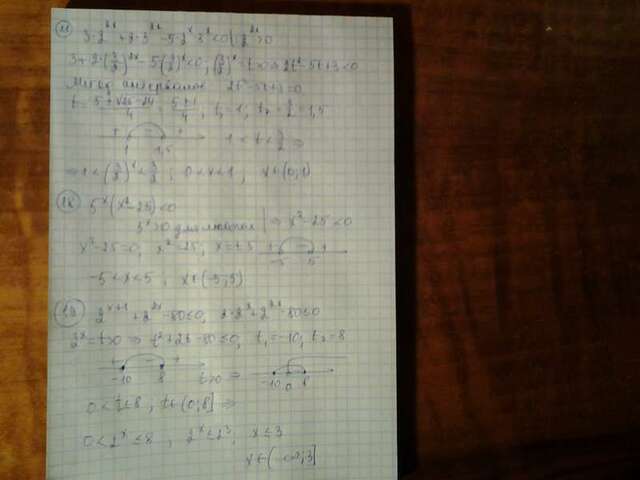 11 3·2^2x + 2·3^2x - 5·2^x·3^x < 0 | : 2^2x > 0
3 + 2·(3/2)^2x - 5(3/2)^x < 0, (3/2)^x = t > 0 ⇒ 2t² - 5t + 3 < 0
Метод интервалов 2t² - 5t + 3 = 0
t = (5 ± √25-24)/4 = (5±1)/4, t₁ = 1, t₂ = 3/2 = 1,5
+ - +
1 1,5 1 < t < 3/2 ⇒
⇒ 1 < (3/2)^x < 3/2; 0 < x < 1, x ∈ (0; 1)
12 5^x (x² - 25) < 0
5^x > 0 для любого | ⇒ x² - 25 < 0
x² - 25 = 0, x² = 25, x = ± 5 + - +
-5 5
-5 < x < 5, x ∈ (-5; 5)
13 2^x+1 + 2^2x - 80 ≤ 0, 2·2^x + 2^2x - 80 ≤ 0
2^x = t > 0 ⇒ t² + 2t - 80 ≤ 0, t₁ = -10, t₂ = 8
+ - +
-10 8 t > 0 ⇒ -10 0 8
0 < t ≤ 8, t ∈ (0; 8] ⇒
0 < 2^x ≤ 8, 2^x ≤ 2^3, x ≤ 3
x ∈ (-∞; 3]